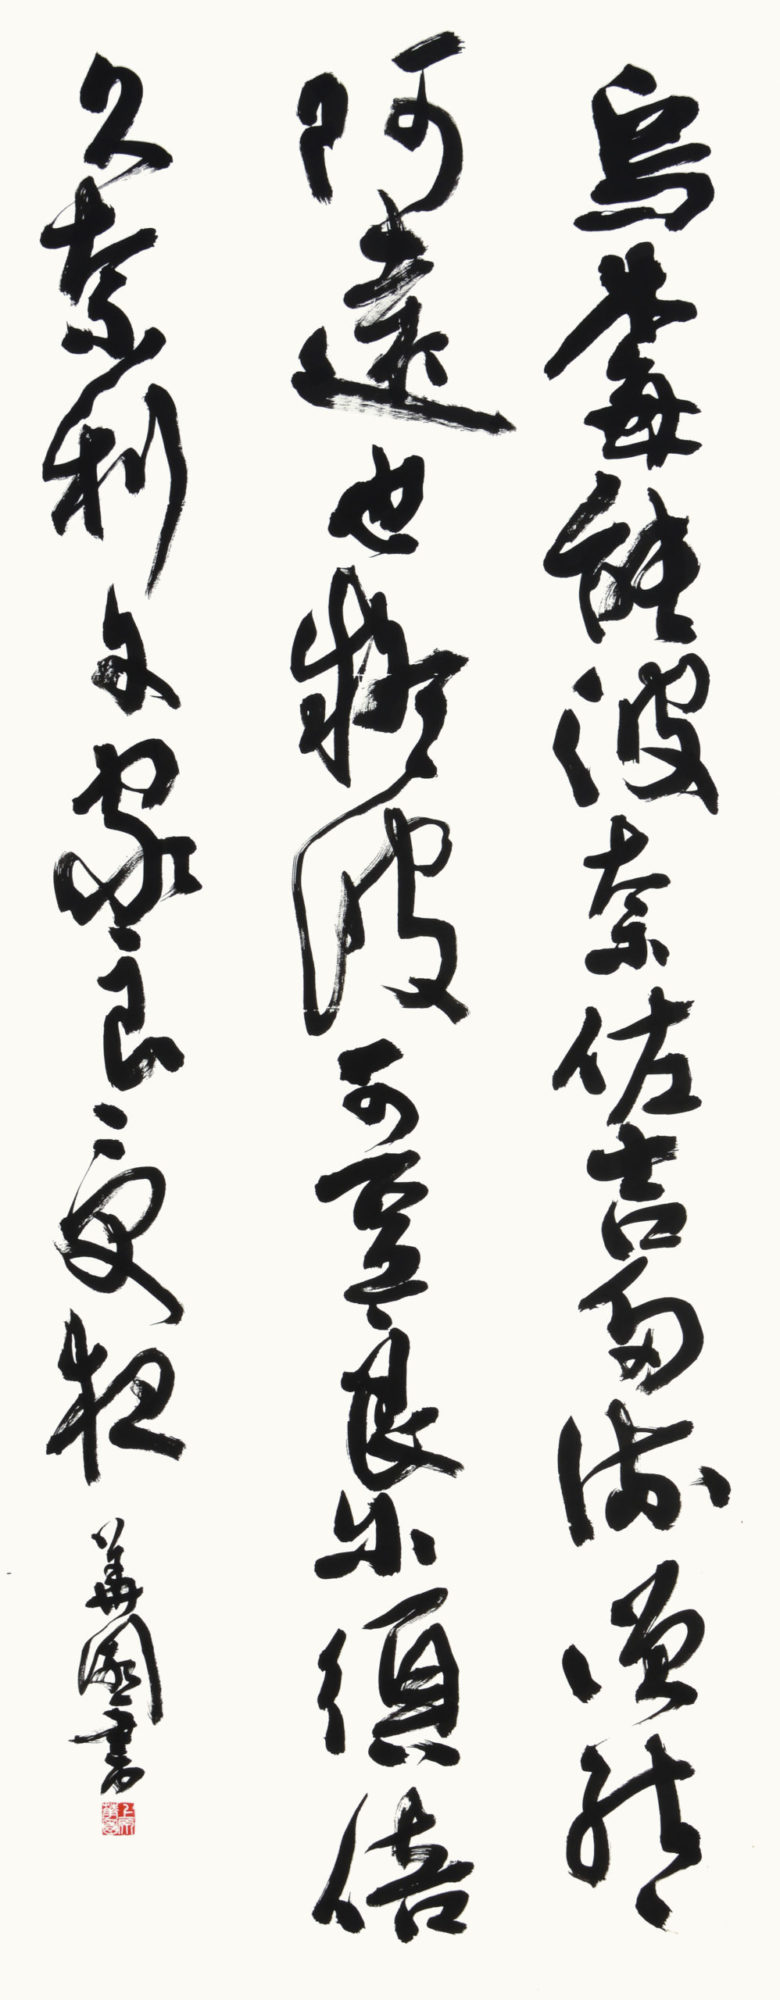 烏梅能波奈佐吉多流僧能々
阿遠也疑波可豆良尓須倍
久奈利尓家良受夜 華園書